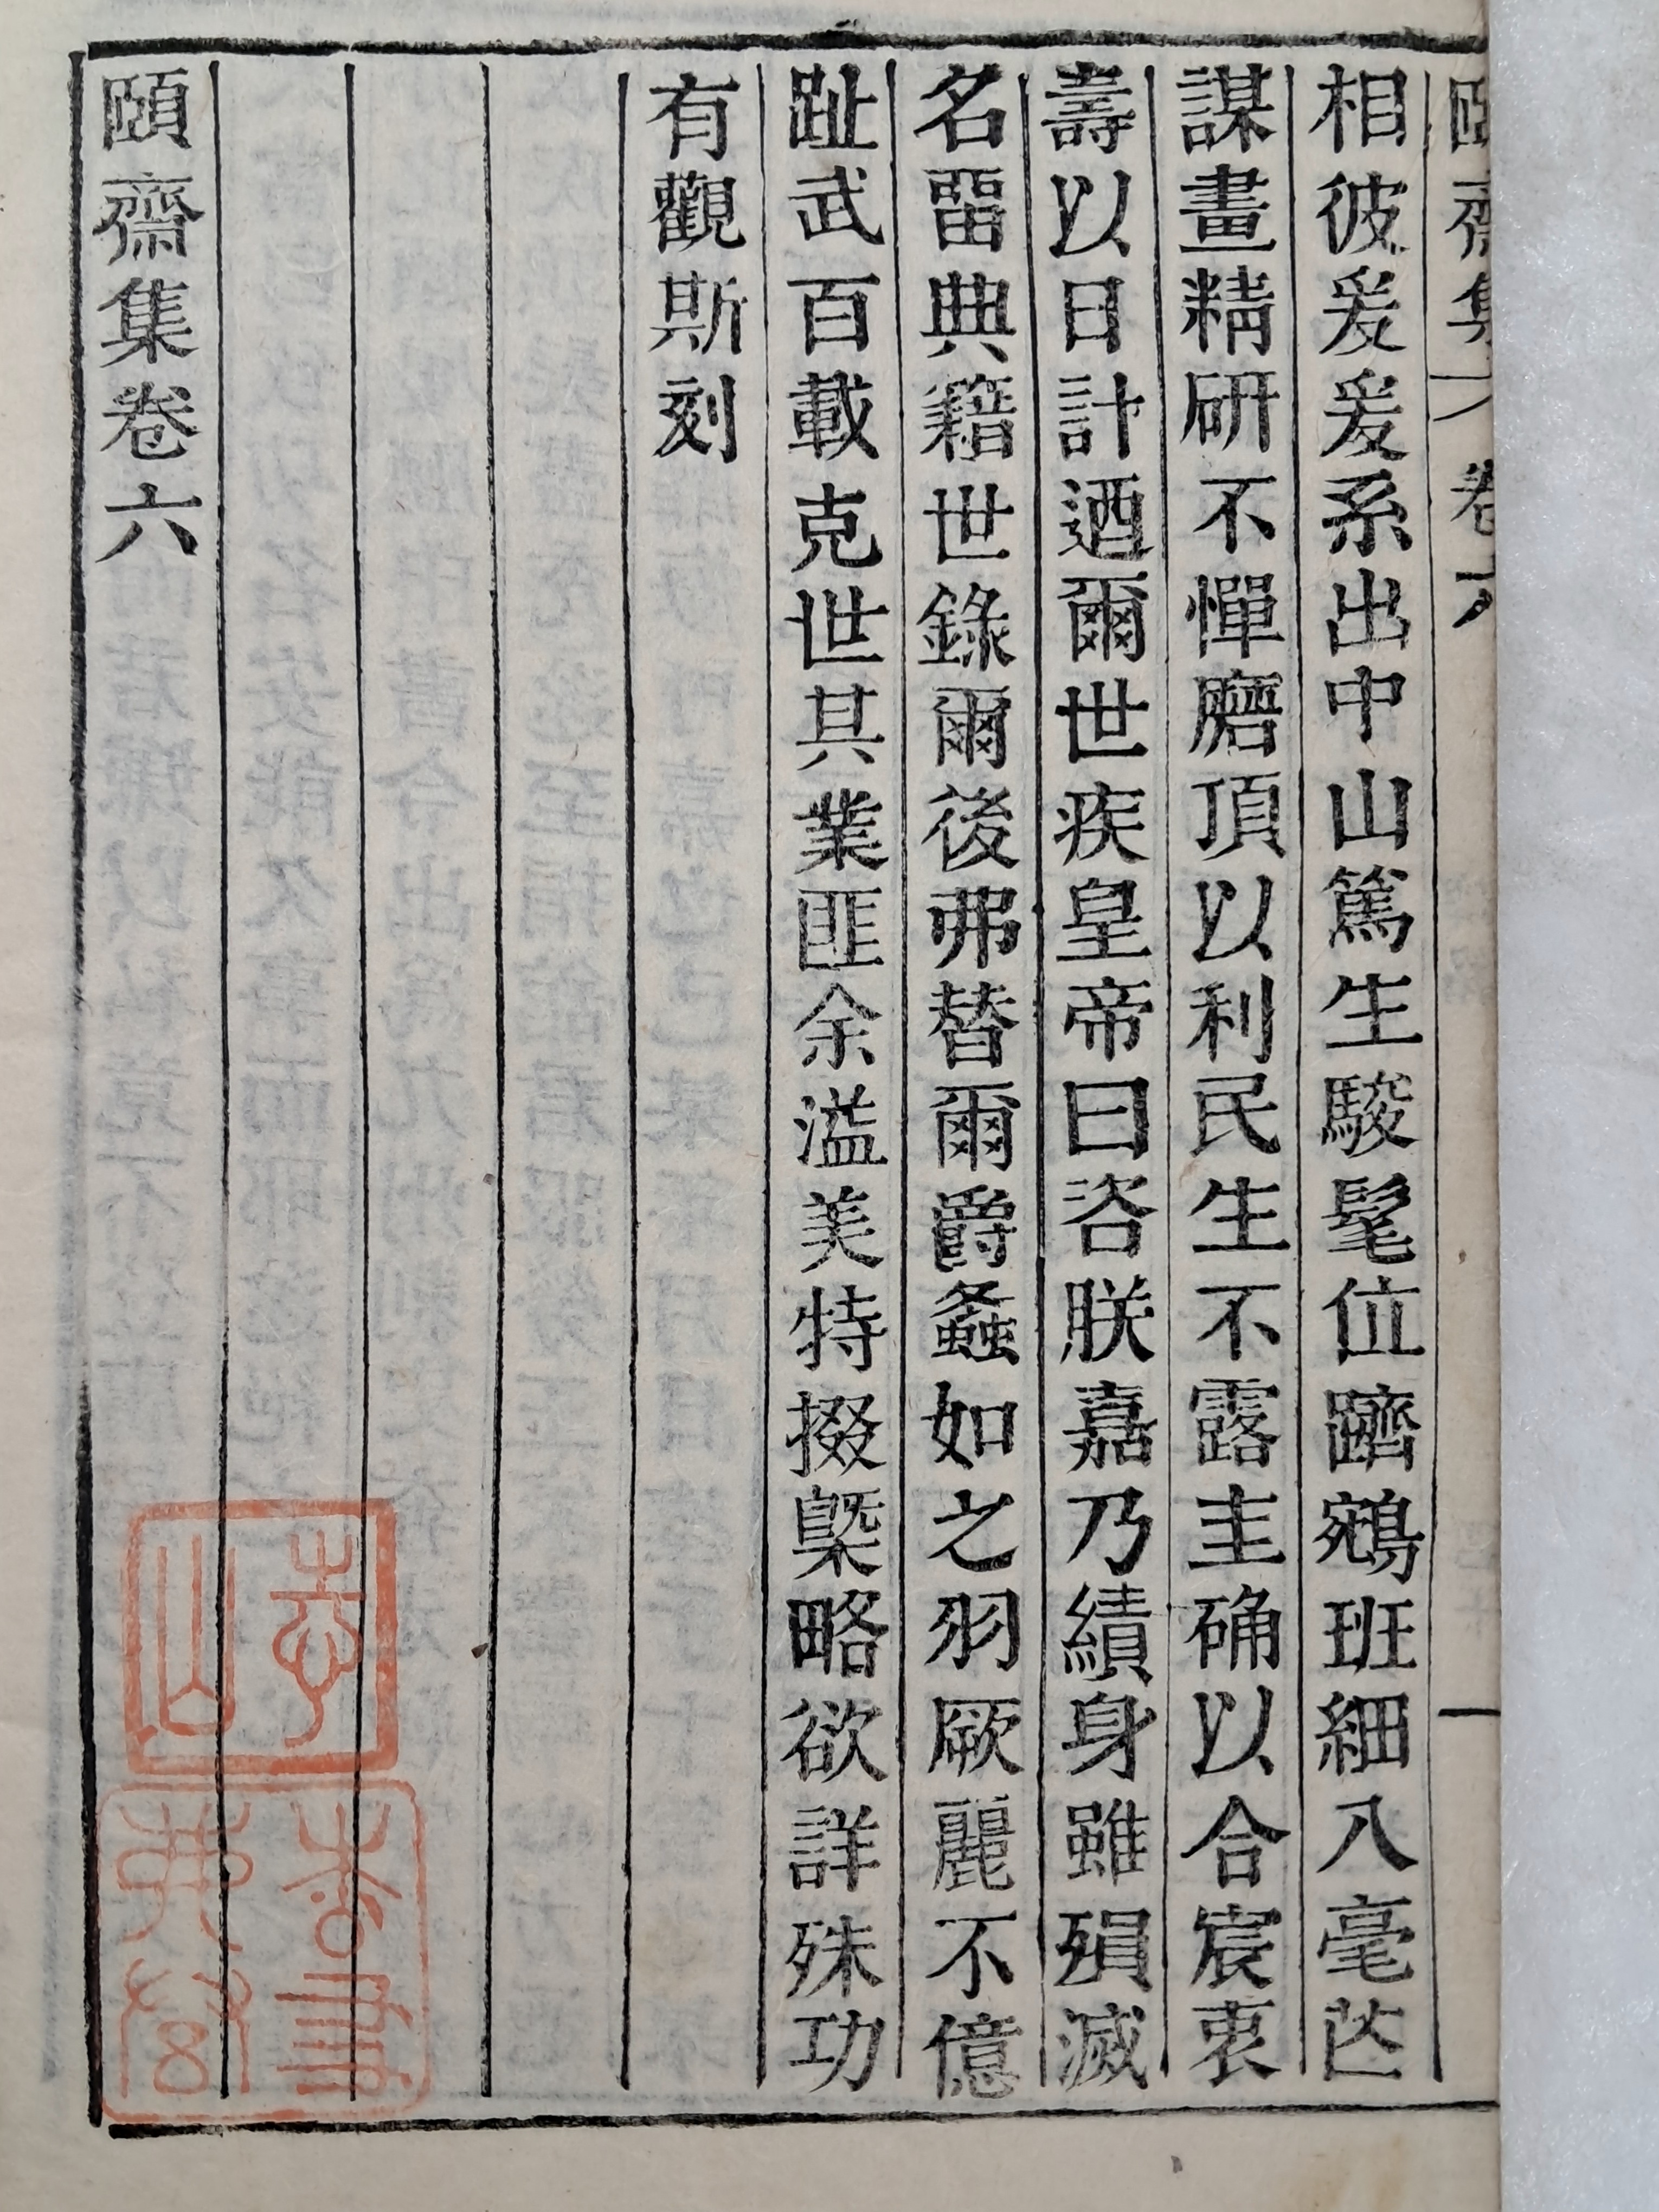 頤齋集 卷六 一
相彼爰爰系出中山篤生駿髦位躋鵷班細入毫芒
謀畫精研不憚磨頂以利民生不露圭确以合宸衷
壽以日計迺爾世疾皇帝曰咨朕嘉乃績身雖殞滅
名畱典籍世錄爾後弗替爾爵螽如之羽厥麗不億
趾武百載克世其業匪余溢美特掇槩略欲詳殊功
有觀斯刻
頤齋集卷六